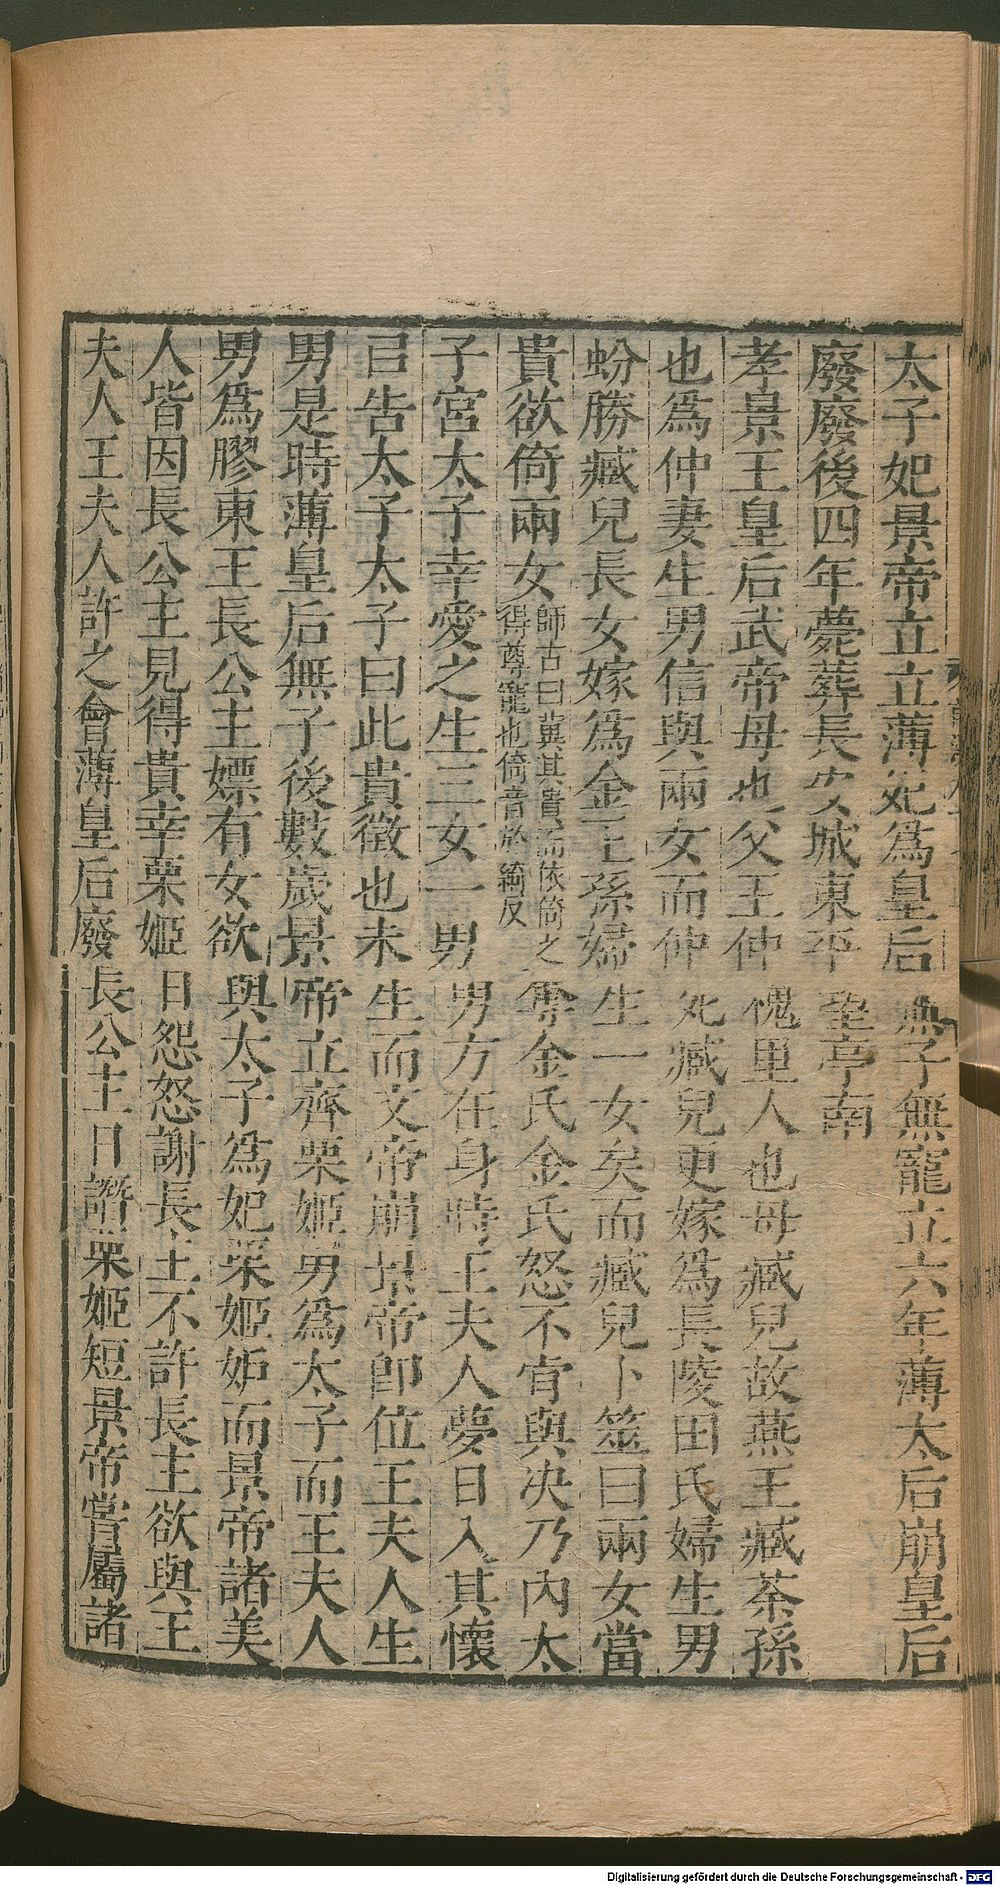 太子妃景帝立立薄妃爲皇后無子無寵立六年薄太后崩皇后
廢廢後四年薨葬長安城東平望亭南
孝景王皇后武帝母也父王仲槐里人也母臧兒故燕王臧荼孫
也爲仲妻生男信與兩女而仲死臧兒更嫁爲長陵田氏婦生男
蚡勝臧兒長女嫁爲金王孫婦生一女矣而臧兒卜筮曰兩女當
貴欲倚兩女師古曰冀其貴而依倚之得尊寵也倚音於綺反奪金氏金氏怒不肯與決乃內太
子宮太子幸愛之生三女一男男方在身時王夫人夢日入其懷
㠯告太子太子曰此貴徵也未生而文帝崩景帝卽位王夫人生
男是時薄皇后無子後數歲景帝立齊栗姬男爲太子而王夫人
男爲膠東王長公主嫖有女欲與太子爲妃栗姬妒而景帝諸美
人皆因長公主見得貴幸栗姬日怨怒謝長主不許長主欲與王
夫人王夫人許之會薄皇后廢長公主日譖栗姬短景帝嘗屬諸
Digitalisierung gefördert durch die Deutsche Forschungsgemeinschaft - DFG